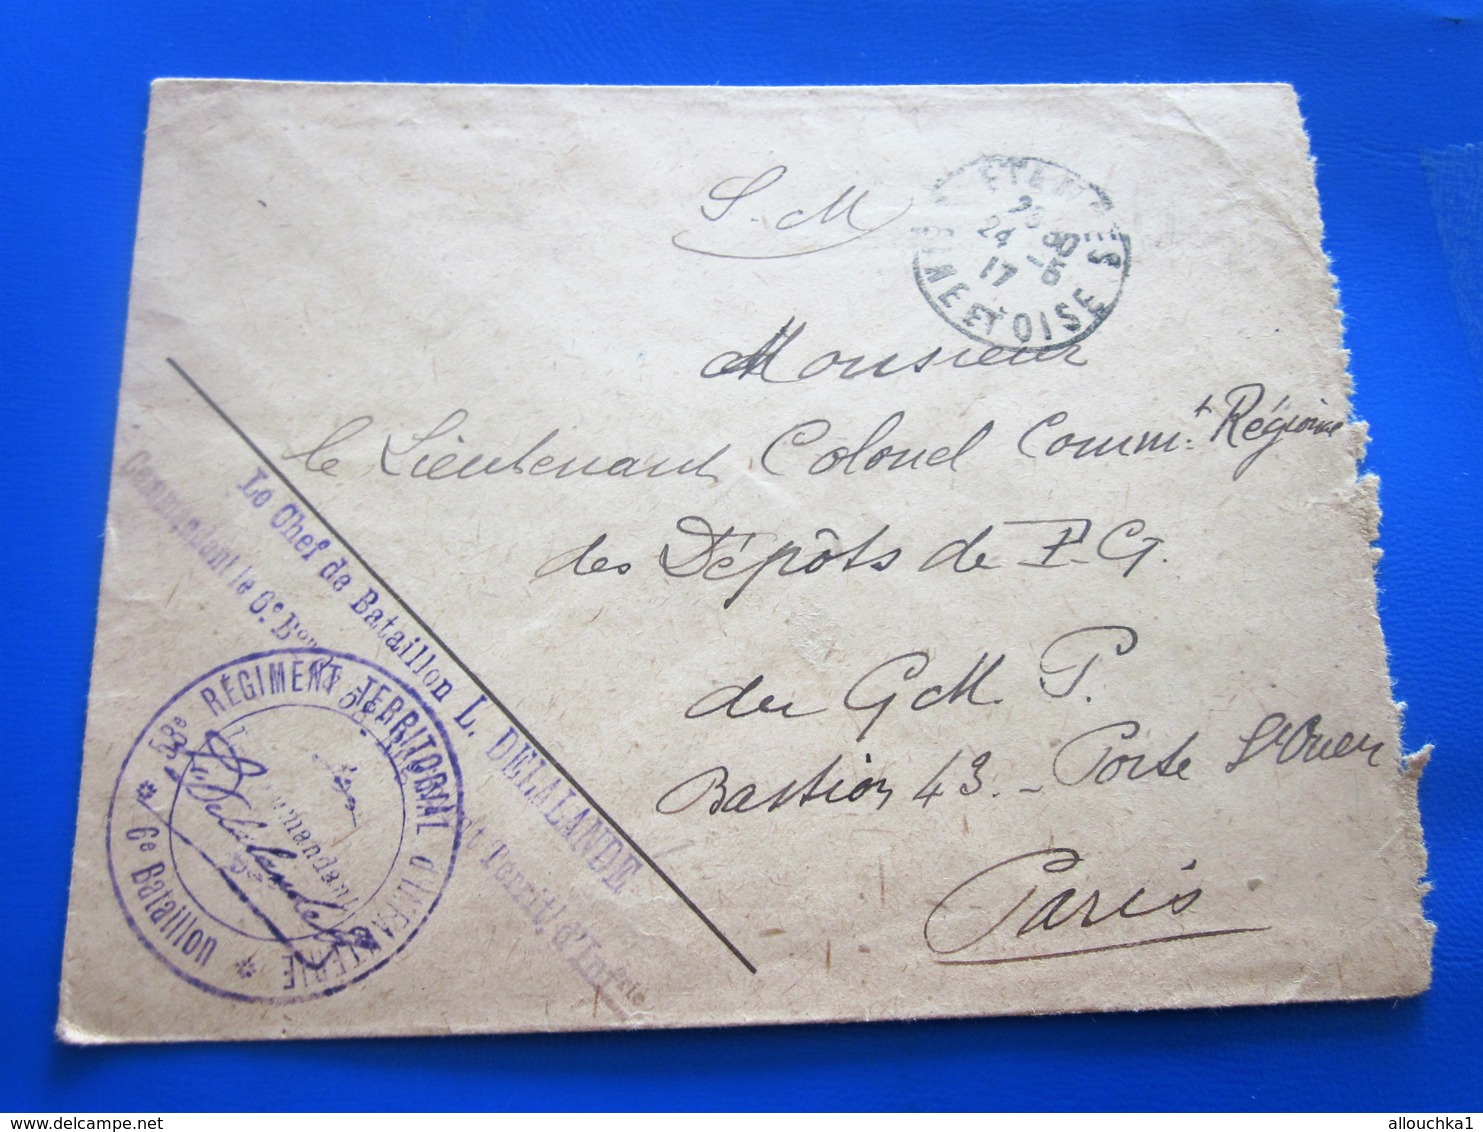 S. M
ETAMPES
24 -5
17
SEINE ET OISE
Monsieur
le Lieutenant Colonel Comm.t Régional
des Dépôts de P. G.
du G M P.
Bastion 43. - Porte St Ouen
Paris
Le Chef de Bataillon L. DELALANDE
Commandant le 6e Bon du 58e
Territ. d'Infrie
58e RÉGIMENT TERRITORIAL D'INFANTERIE
* 6e Bataillon *
Le
Commandant
Delalande
www.delcampe.net
allouchka1